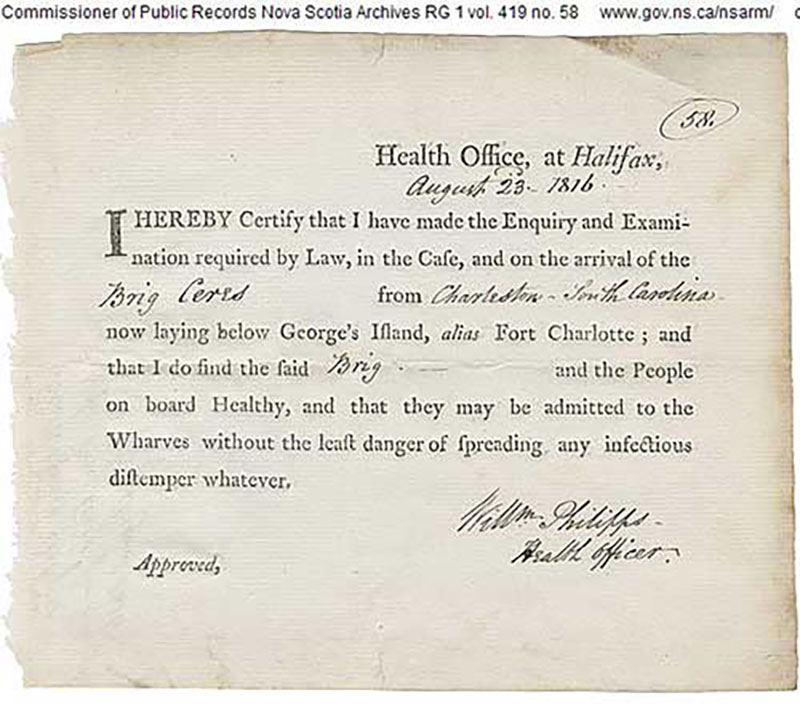 Commissioner of Public Records Nova Scotia Archives RG 1 vol. 419 no. 58 www.gov.ns.ca/nsarm/
58.
Health Office, at Halifax,
August 23 - 1816 -
I HEREBY Certify that I have made the Enquiry and Exami-
nation required by Law, in the Caſe, and on the arrival of the
Brig Ceres from Charleston - South Carolina
now laying below George's Iſland, alias Fort Charlotte ; and
that I do find the ſaid Brig - and the People
on board Healthy, and that they may be admitted to the
Wharves without the leaſt danger of ſpreading any infectious
diſtemper whatever.
Willm Philipps -
Health officer.
Approved,